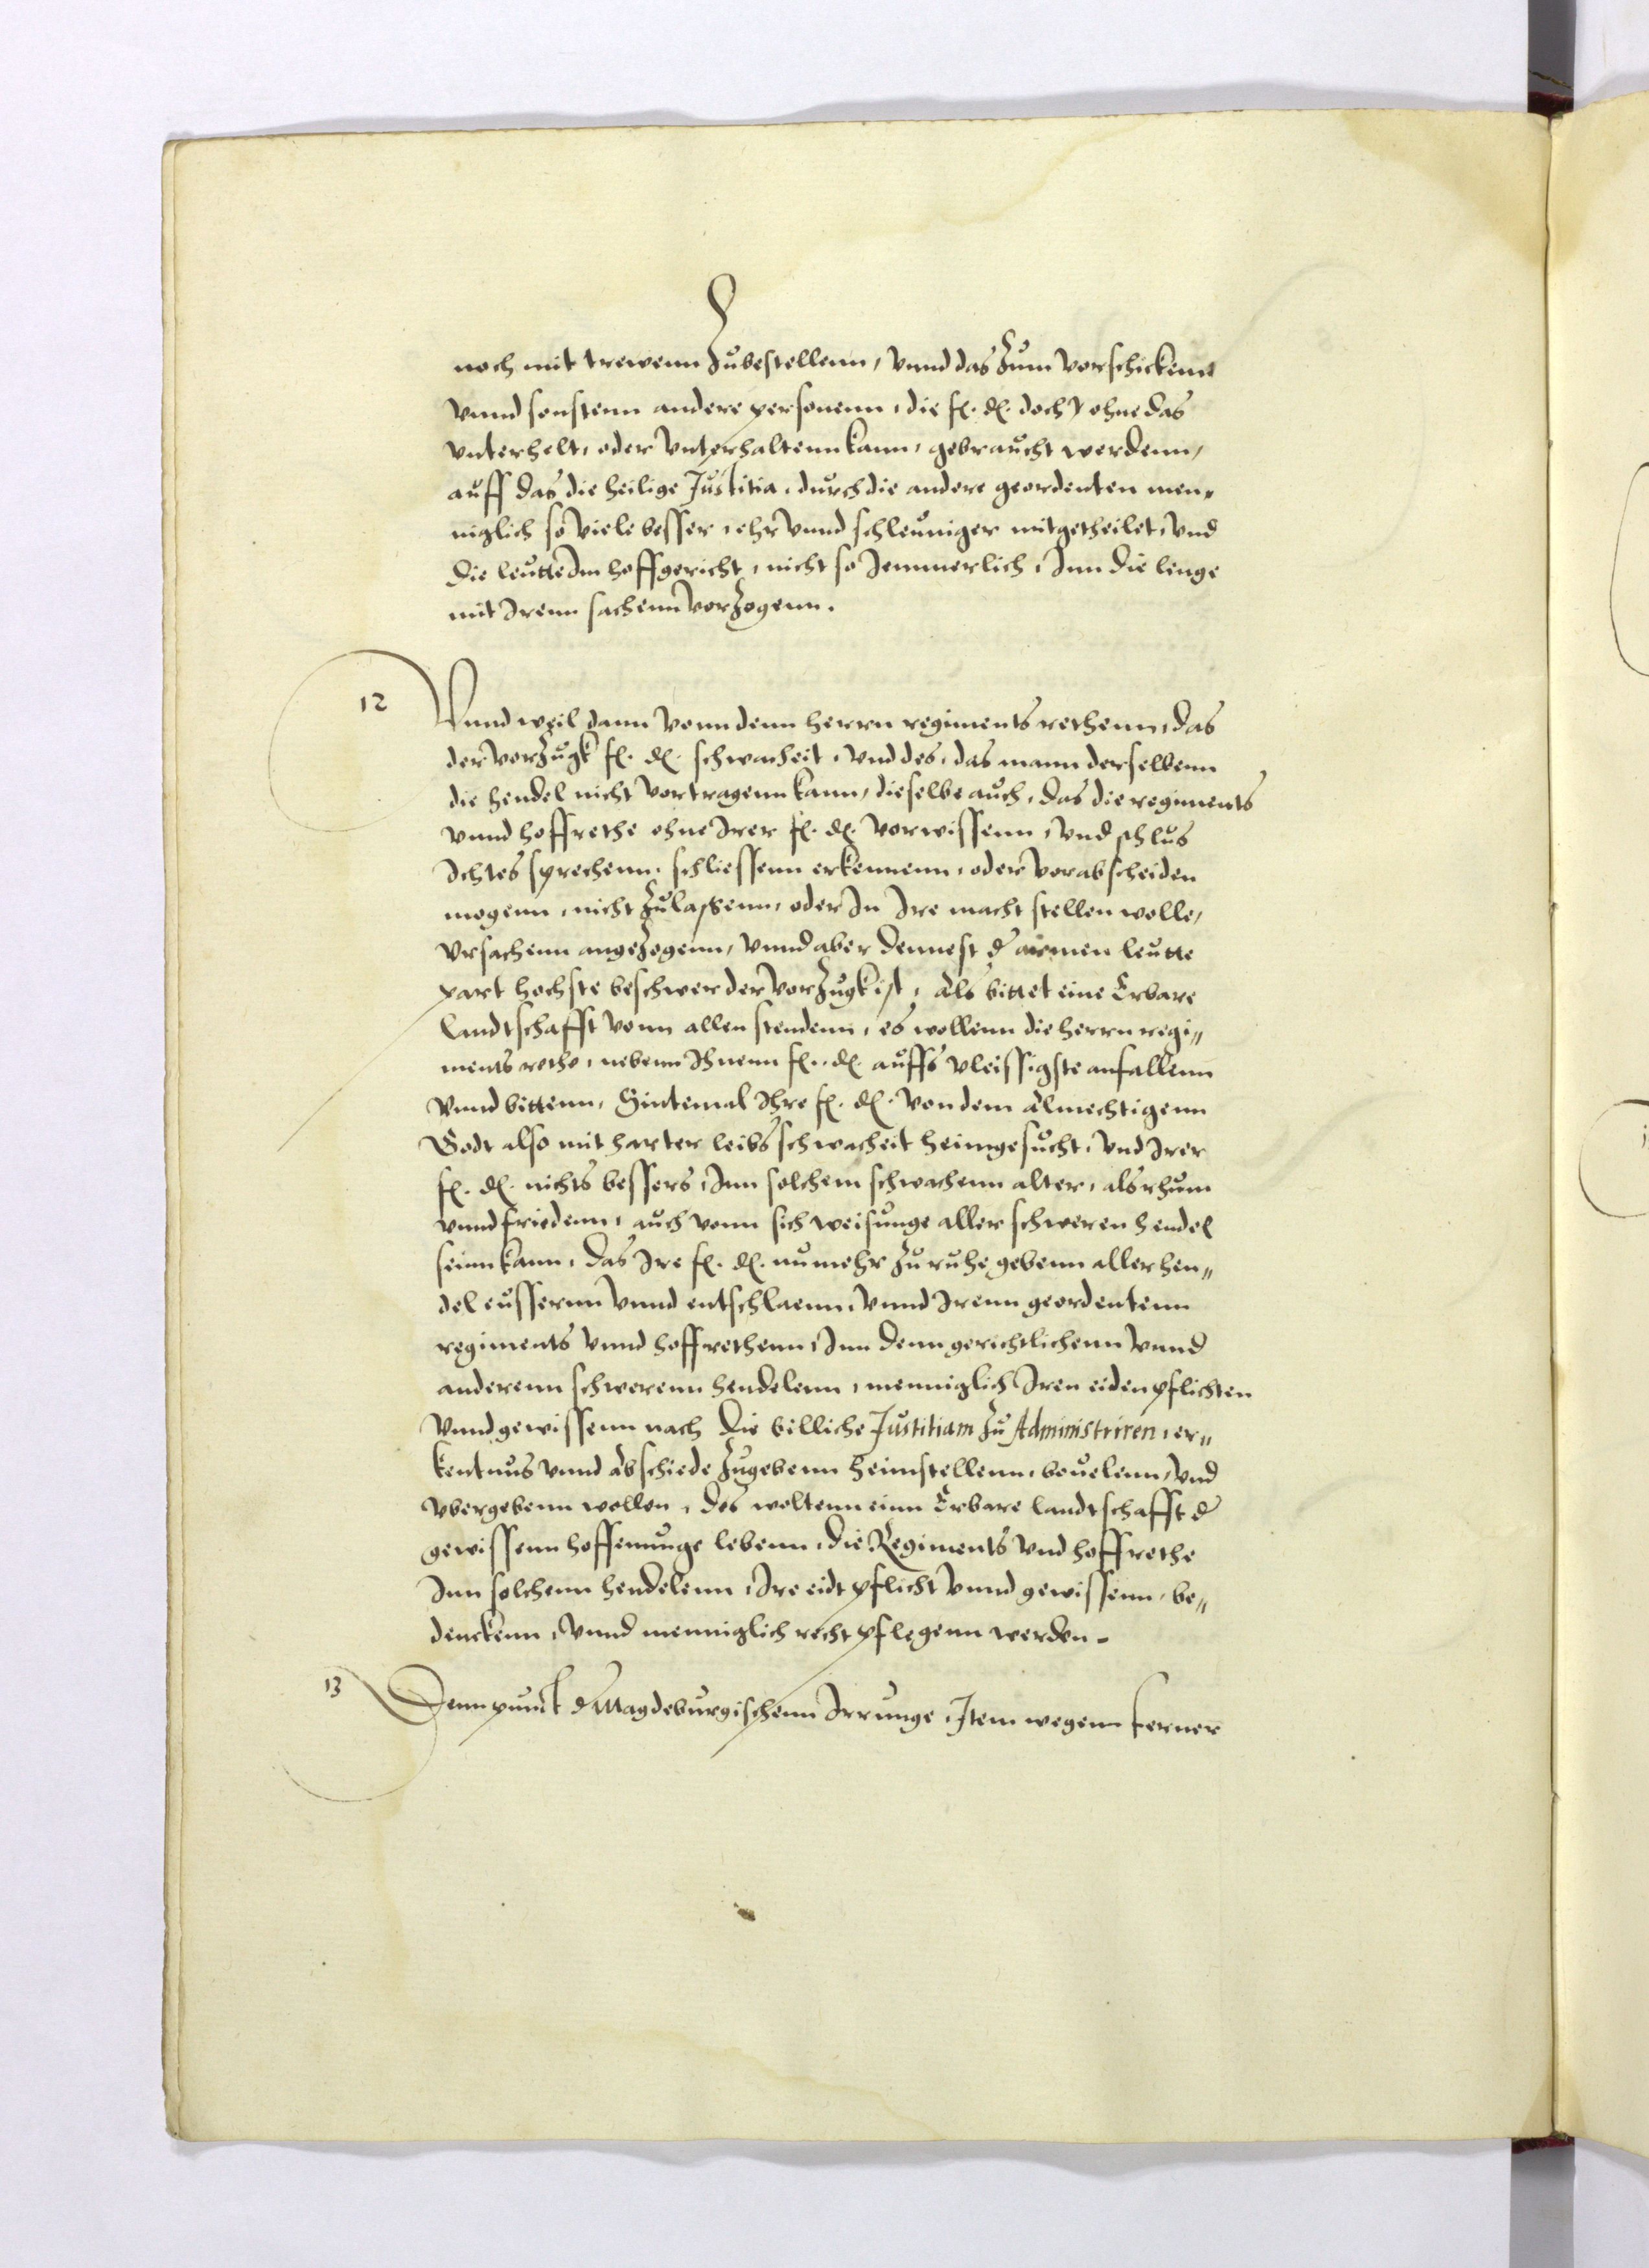 noch mit trewenn Zubestellenn, vnnd das Zum vorschickenn
vnnd sonstenn andere personenn, die f. d. doch ohne das
vnterhelt, oder vnterhaltenn kann, gebraucht werdenn,
auff das die heilige Justitia, durch die andere geordenten men„
niglich so viele besser, ehr vnnd schleuniger mitgetheilet, vnd
die leutte Im hoffgericht, nicht so Jemmerlich, Inn die lenge
mit Irenn sachenn vorZogenn.
12 Vnnd weil dann vonn denn herrn regiments rethenn, das
der vorZugk f. d. schwacheit, vnd des, das mann derselbenn
die hendel nicht vortragenn kann, dieselbe auch, das die regiments
vnnd hoffrethe ohne Irer f. d. vorwissenn, vnd schlus
Ichtes sprechenn, schliessenn erkennenn, oder vorabscheiden
mogenn, nicht Zulassenn, oder In Ire macht stellen wolle,
vrsachenn angeZogenn, vnnd aber dennest d armen leutte
part hochste beschwer der vorZugk ist, Als bittet eine Erbare
landtschafft vonn allen stendenn, es wollenn die herrn regi„
ments rethe, nebenn Ihnenn f. d. auffs vleissigste anfallenn
vnnd bittenn, Sintemal Ihre f. d. von dem Almechtigenn
Godt also mit harter leibs schwacheit heimgesucht, vnd Irer
f. d. nichts bessers, Inn solchem schwachenn alter, als rhum
vnnd friedenn, auch vonn sich weisunge aller schweren hendel
seinn kann, das Ire f. d. numehr Zu ruhe gebenn aller hen„
del eussernn vnnd entschlaenn, vnnd Irenn geordentenn
regiments vnnd hoffrethenn, Inn denn gerichtlichenn vnnd
anderenn schwerenn hendelenn, menniglich Iren eiden pflichten
vnnd gewissenn nach die billiche Justitiam Zu Administriren, er„
kentnus vnnd Abschiede Zugebenn heimstellenn, beuelenn, vnd
vbergebenn wollen, des woltenn einn Erbare landtschafft d
gewissenn hoffenunge lebenn, die Regiments vnd hoffrethe
Inn solchenn hendelenn, Ire eidt pflicht vnnd gewissenn, be„
denckenn, vnnd menniglich recht pflegenn werden.
13 Denn punct d Magdeburgischenn Irrunge, Item wegenn ferner